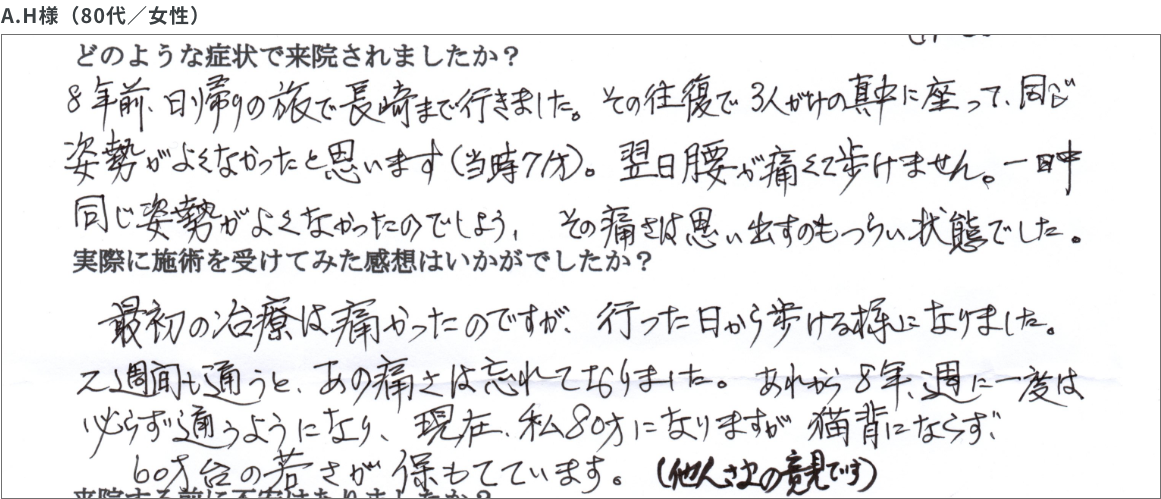 A.H様（80代／女性）
どのような症状で来院されましたか？
8年前、日帰りの旅で長崎まで行きました。その往復で3人がけの真中に座って、同じ
姿勢がよくなかったと思います（当時71才）。翌日腰が痛くて歩けません。一日中
同じ姿勢がよくなかったのでしょう、その痛さは思い出すのもつらい状態でした。
実際に施術を受けてみた感想はいかがでしたか？
最初の治療は痛かったのですが、行った日から歩ける様になりました。
2週間も通うと、あの痛さは忘れておりました。あれから8年、週に一度は
必らず通うようになり、現在、私80才になりますが猫背にならず、
60才台の若さが保もてています。（他人さまの意見です）
来院する前に不安はありましたか？